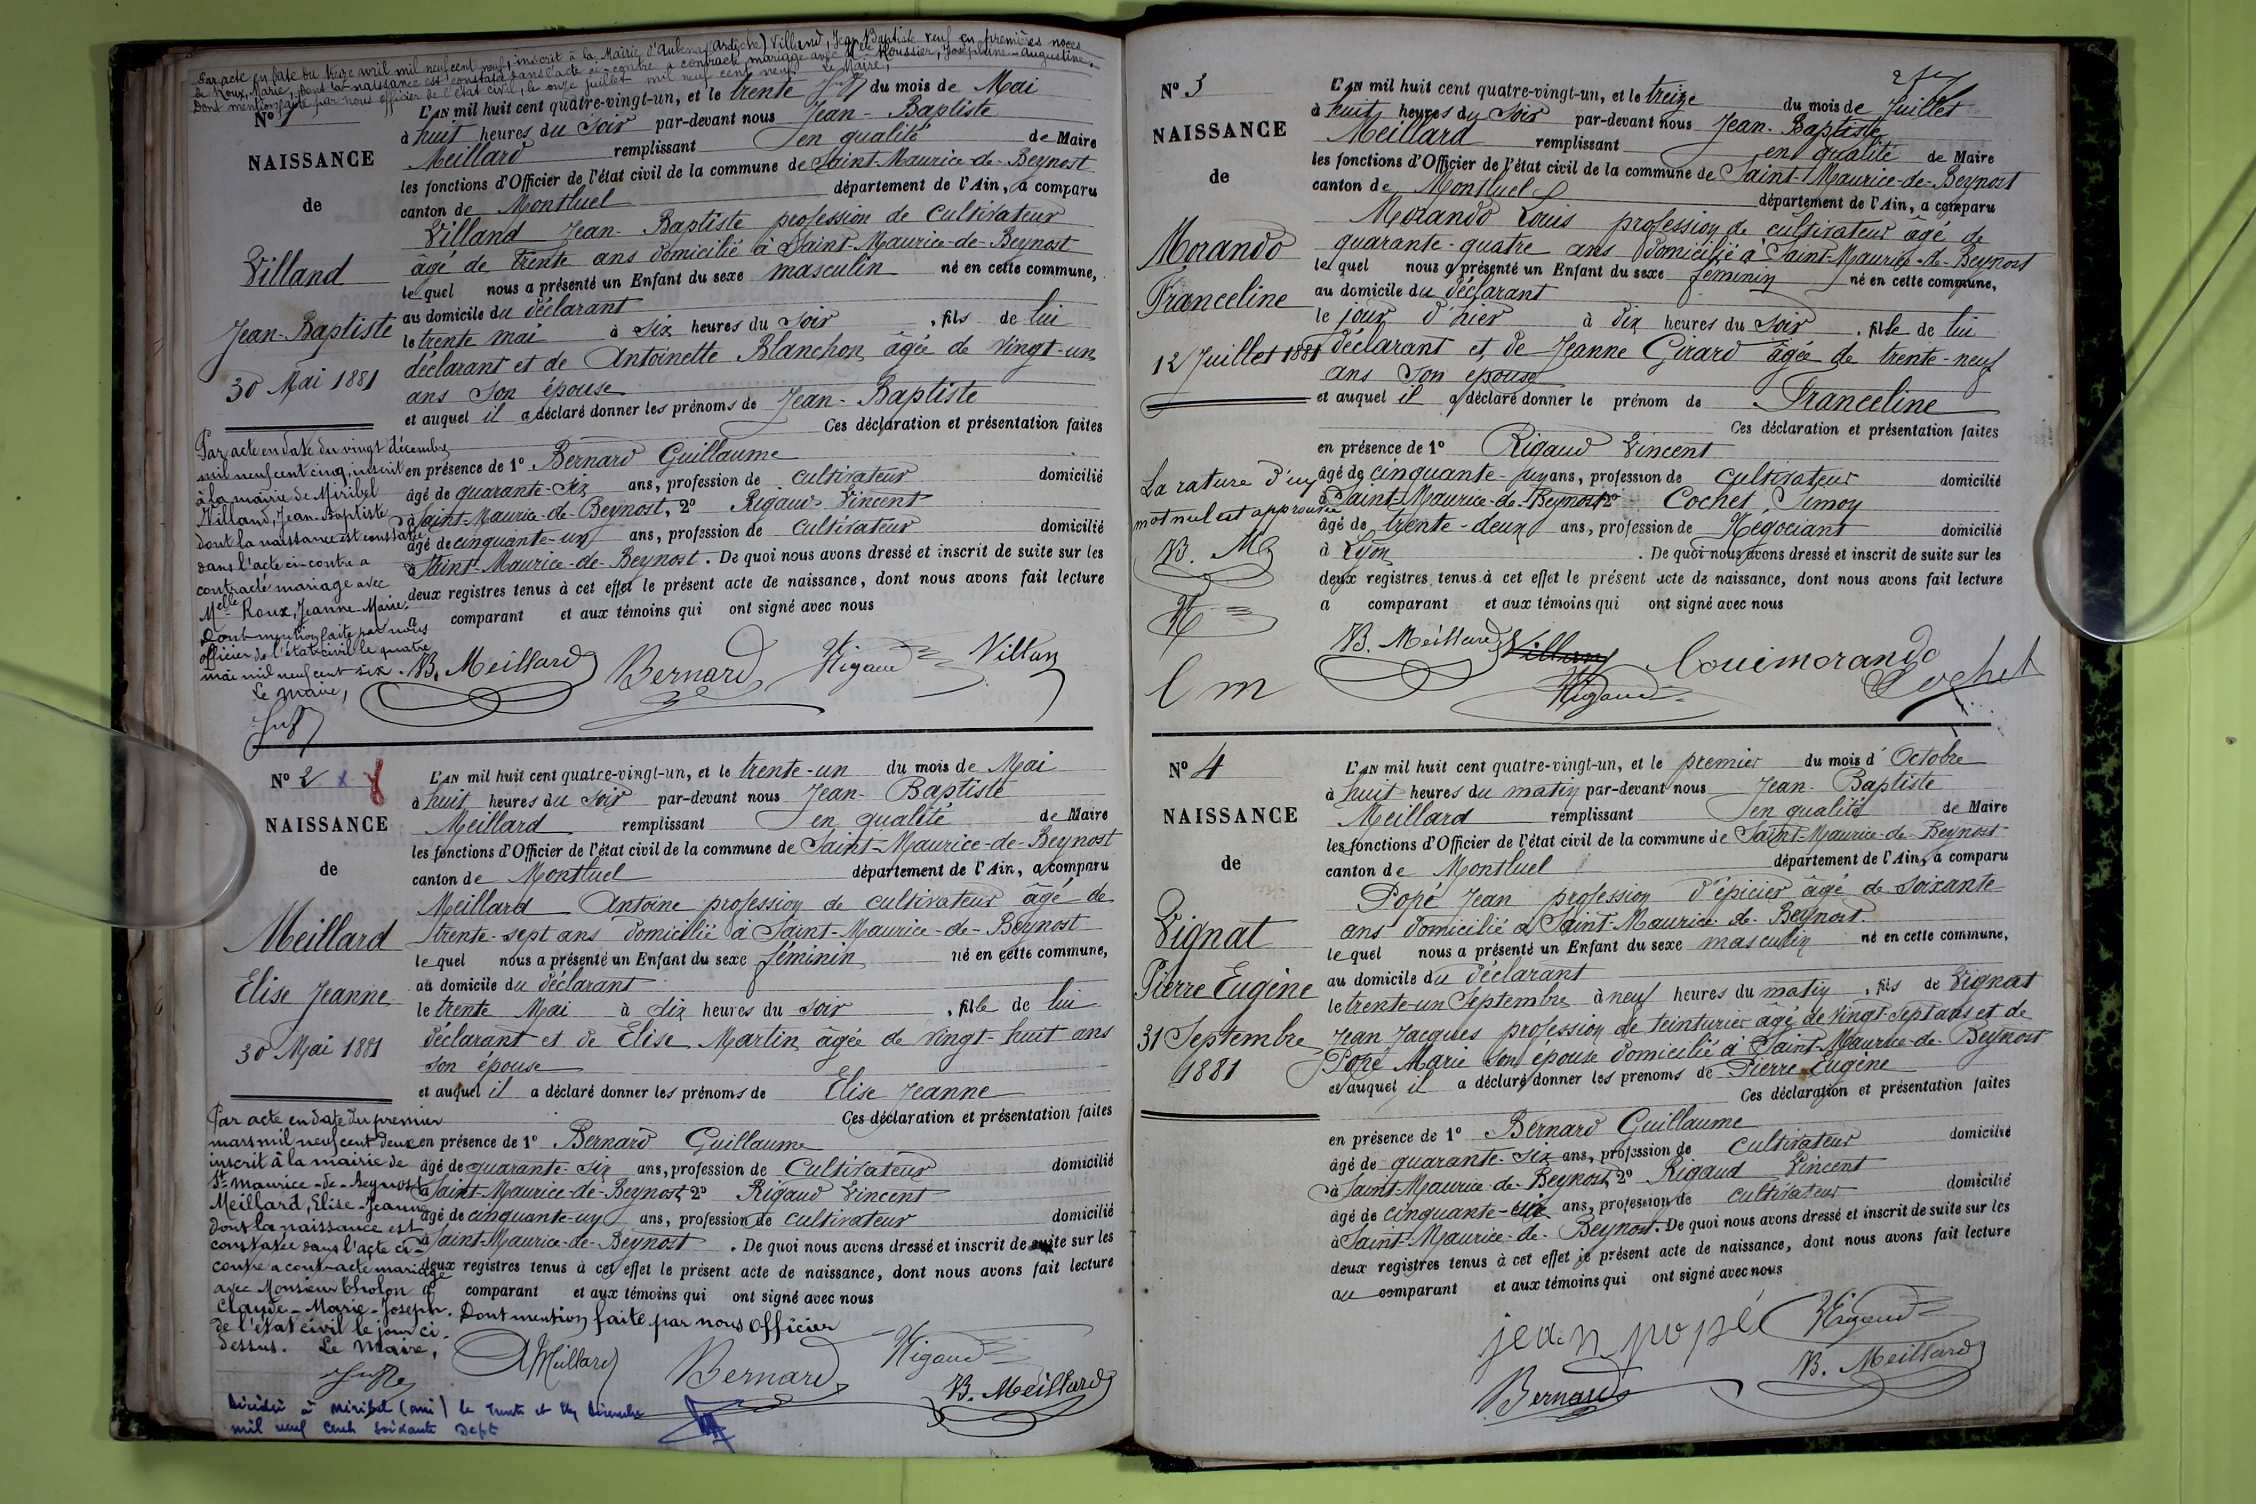 Par acte en date du treize avril mil neuf cent neuf, inscrit à la Mairie d'Aubenas (Ardèche) Villand, Jean-Baptiste veuf en premières noces
de Roux, Marie, dont la naissance est constatée dans l'acte ci-contre a contracté mariage avec Moussier, Joséphine-Augustine.
Dont mention faite par nous officier de l'état civil, le onze juillet mil neuf cent neuf Le Maire,
N° 1
NAISSANCE
de
Villand
Jean-Baptiste
30 Mai 1881
L'AN mil huit cent quatre-vingt-un, et le trente du mois de Mai
à huit heures du Soir par-devant nous Jean-Baptiste
Meillard remplissant en qualité de Maire
les fonctions d'Officier de l'état civil de la commune de Saint-Maurice-de-Beynost
canton de Montluel département de l'Ain, a comparu
Villand Jean-Baptiste profession de cultivateur
âgé de trente ans domicilié à Saint-Maurice-de-Beynost
lequel nous a présenté un Enfant du sexe masculin né en cette commune,
au domicile du déclarant
le trente mai à six heures du Soir, fils de lui
déclarant et de Antoinette Blanchon âgée de vingt-un
ans son épouse
et auquel il a déclaré donner les prénoms de Jean-Baptiste
Ces déclaration et présentation faites
en présence de 1° Bernard Guillaume
âgé de quarante-six ans, profession de cultivateur domicilié
à Saint-Maurice-de-Beynost, 2° Rigaud Vincent
âgé de cinquante-un ans, profession de cultivateur domicilié
à Saint-Maurice-de-Beynost. De quoi nous avons dressé et inscrit de suite sur les
deux registres tenus à cet effet le présent acte de naissance, dont nous avons fait lecture
a comparant et aux témoins qui ont signé avec nous
JB. Meillard Bernard Rigaud Villan
Par acte en date du vingt décembre
mil neuf cent cinq, inscrit
à la mairie de Miribel
Villand, Jean-Baptiste
dont la naissance est constatée
dans l'acte ci-contre a
contracté mariage avec
Melle Roux, Jeanne-Marie.
Dont mention faite par nous
officier de l'état civil le quatre
mai mil neuf cent six.
Le Maire,
N° 2 x
NAISSANCE
de
Meillard
Elise Jeanne
30 Mai 1881
L'AN mil huit cent quatre-vingt-un, et le trente-un du mois de Mai
à huit heures du Soir par-devant nous Jean-Baptiste
Meillard remplissant en qualité de Maire
les fonctions d'Officier de l'état civil de la commune de Saint-Maurice-de-Beynost
canton de Montluel département de l'Ain, a comparu
Meillard Antoine profession de cultivateur âgé de
trente-sept ans domicilié à Saint-Maurice-de-Beynost
lequel nous a présenté un Enfant du sexe féminin né en cette commune,
au domicile du déclarant
le trente Mai à dix heures du soir, fille de lui
déclarant et de Elise Martin âgée de vingt-huit ans
son épouse
et auquel il a déclaré donner les prénoms de Elise Jeanne
Ces déclaration et présentation faites
en présence de 1° Bernard Guillaume
âgé de quarante-six ans, profession de cultivateur domicilié
à Saint-Maurice-de-Beynost, 2° Rigaud Vincent
âgé de cinquante-un ans, profession de cultivateur domicilié
à Saint-Maurice-de-Beynost. De quoi nous avons dressé et inscrit de suite sur les
deux registres tenus à cet effet le présent acte de naissance, dont nous avons fait lecture
a comparant et aux témoins qui ont signé avec nous
Par acte en date du premier
mars mil neuf cent deux
inscrit à la mairie de
St-Maurice-de-Beynost
Meillard, Elise-Jeanne
dont la naissance est
constatée dans l'acte ci-
contre a contracté mariage
avec Monsieur Cholon
Claude-Marie-Joseph. Dont mention faite par nous officier
de l'état civil le jour ci-
dessus. Le Maire,
A Meillard Bernard Rigaud JB. Meillard
Décédée à Miribel (Ain) le trente et un Décembre
mil neuf cent soixante sept
N° 3
NAISSANCE
de
Morando
Franceline
12 Juillet 1881
L'AN mil huit cent quatre-vingt-un, et le treize du mois de Juillet
à huit heures du Soir par-devant nous Jean-Baptiste
Meillard remplissant en qualité de Maire
les fonctions d'Officier de l'état civil de la commune de Saint-Maurice-de-Beynost
canton de Montluel département de l'Ain, a comparu
Morando Louis profession de cultivateur âgé de
quarante-quatre ans domicilié à Saint-Maurice-de-Beynost
lequel nous a présenté un Enfant du sexe féminin né en cette commune,
au domicile du déclarant
le jour d'hier à dix heures du Soir, fille de lui
déclarant et de Jeanne Girard âgée de trente-neuf
ans son épouse
et auquel il a déclaré donner le prénom de Franceline
Ces déclaration et présentation faites
en présence de 1° Rigaud Vincent
âgé de cinquante-un ans, profession de cultivateur domicilié
à Saint-Maurice-de-Beynost 2° Cochet Simon
âgé de trente-deux ans, profession de Négociant domicilié
à Lyon. De quoi nous avons dressé et inscrit de suite sur les
deux registres tenus à cet effet le présent acte de naissance, dont nous avons fait lecture
a comparant et aux témoins qui ont signé avec nous
La rature d'un
mot nul est approuvée
JB. M
R
l m
JB. Meillard Villan Rigaud louimorando Cochet
N° 4
NAISSANCE
de
Vignat
Pierre Eugène
31 Septembre
1881
L'AN mil huit cent quatre-vingt-un, et le premier du mois d'Octobre
à huit heures du matin par-devant nous Jean-Baptiste
Meillard remplissant en qualité de Maire
les fonctions d'Officier de l'état civil de la commune de Saint-Maurice-de-Beynost
canton de Montluel département de l'Ain, a comparu
Popé Jean profession d'épicier âgé de soixante
ans domicilié à Saint-Maurice-de-Beynost
lequel nous a présenté un Enfant du sexe masculin né en cette commune,
au domicile du déclarant
le trente-un Septembre à neuf heures du matin, fils de Vignat
Jean Jacques profession de teinturier âgé de vingt-sept ans et de
Popé Marie son épouse domicilié à Saint-Maurice-de-Beynost
et auquel il a déclaré donner les prénoms de Pierre Eugène
Ces déclaration et présentation faites
en présence de 1° Bernard Guillaume
âgé de quarante-six ans, profession de cultivateur domicilié
à Saint-Maurice-de-Beynost, 2° Rigaud Vincent
âgé de cinquante- ans, profession de cultivateur domicilié
à Saint-Maurice-de-Beynost. De quoi nous avons dressé et inscrit de suite sur les
deux registres tenus à cet effet le présent acte de naissance, dont nous avons fait lecture
au comparant et aux témoins qui ont signé avec nous
jean popé Rigaud
Bernard JB. Meillard